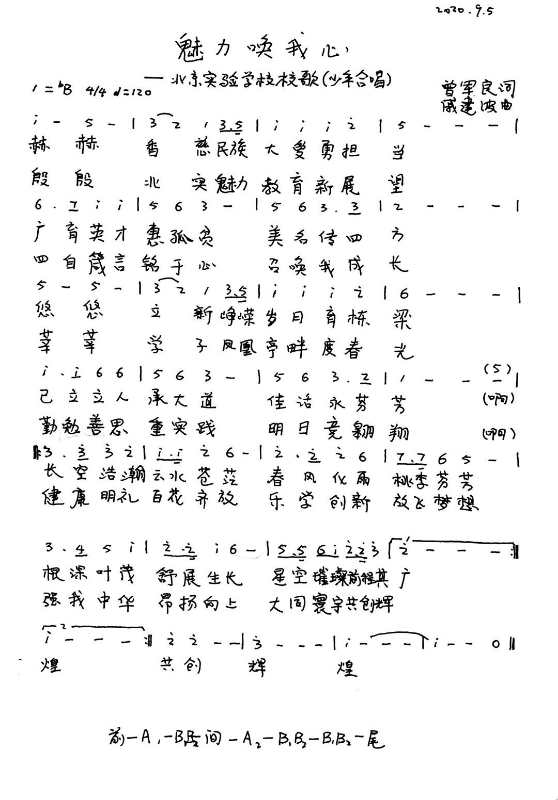 2020.9.5
魅力唤我心
——北京实验学校校歌(少年合唱)
1=bB 4/4 ♩=120
曾军良词
戚建波曲
i - 5 - | 3 2 1 3.5 | i i i 2 | 5 - - - |
赫赫 香慈民族大爱勇担当
殷殷 北实魅力教育新展望
6. 7 i i | 5 6 3 - | 5 6 3. 3 | 2 - - - |
广育英才惠孤贫 美名传四方
四自箴言铭于心 召唤我成长
5 - 5 - | 3 2 1 3.5 | i i i 2 | 6 - - - |
悠悠 立新峥嵘岁月育栋梁
莘莘 学子凤凰亭畔度春光
i. i 6 6 | 5 6 3 - | 5 6 3. 2 | 1 - - (5)
己立立人承大道 佳话永芬芳 (啊)
勤勉善思重实践 明日竞翱翔 (啊)
3. 3 3 2 | i.i 2 6 - | 2. 2 2 6 | 7.7 6 5 - |
长空浩瀚云水苍茫 春风化雨桃李芬芳
健康明礼百花齐放 乐学创新放飞梦想
3. 4 5 i | 2.2 i 6 - | 5.5 6 i 2 2 3 | 2 - - - :||
根深叶茂舒展生长 星空璀璨前程共广
强我中华昂扬向上 大同寰宇共创辉
2
i - - - :|| 2 2 - - | 3 - - - | i - - - | i - - 0 ||
煌 共创辉煌
前-A1-B1间-A2-B1B2-B1B2-尾